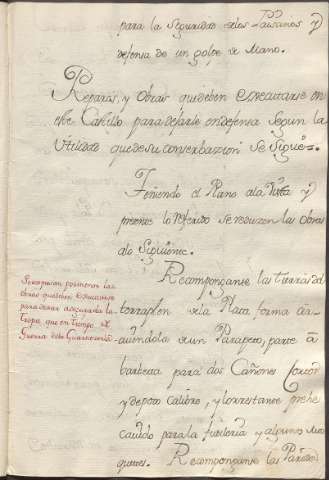 para la seguridad de los Paisanos y
defensa de un golpe de Mano.
Reparos, y Obras que deben Executarse en
este Castillo para dejarle en defensa segun la
Utilidad que de su conserbazion se sigue.
Teniendo el Plano a la Vista y
presente lo referido se reduzen las Obras
a lo Siguiente.
Recomponganse las tierras del
terraplen de la Plata forma än-
adiendola de un Parapeto, parte ä
barbeta para dos Cañones
y de poco Calibre, y lo restante
para la fusileria y algunos Mos
quetes. Recomponganse las
Se expresan por menor las
obras que deben Executarse
para tener asegurada la
Tropa que en tiempo de
Guerra debe Guarnezerlo